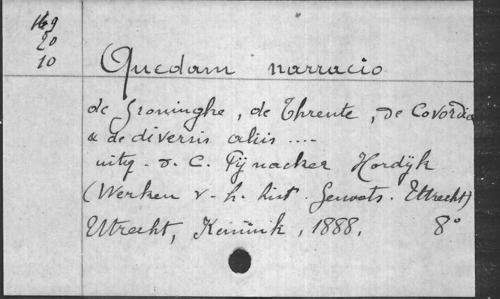 169
20
10
Quedam narracio
de Groninghe, de Thrente, de Covordia
& de diversis aliis ....
uitg. d. C. Pijnacker Hordijk
(Werken v. h. hist. Genoots. Utrecht)
Utrecht, Kemink, 1888. 8°